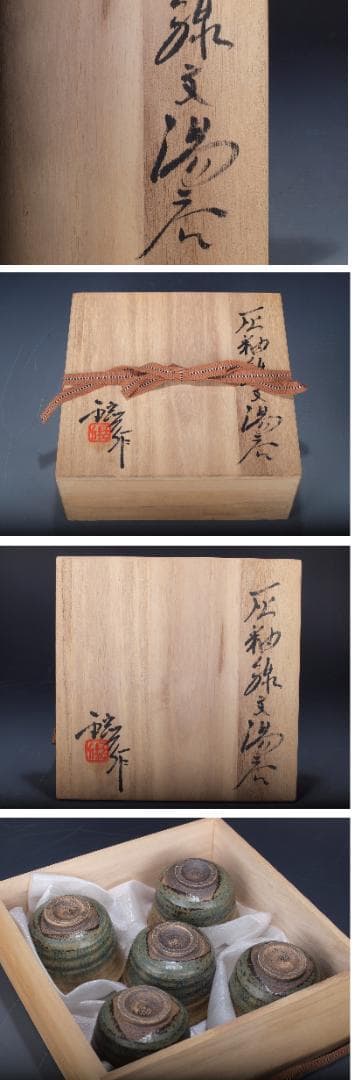 線文湯呑
灰釉線文湯呑
作
灰釉線文湯呑
作